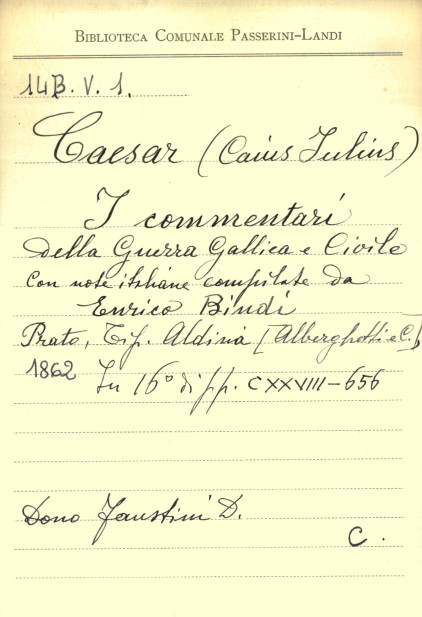 BIBLIOTECA COMUNALE PASSERINI-LANDI
14B. V. 1.
Caesar (Caius Julius)
I commentari
della Guerra Gallica e Civile
con note italiane compilate da
Enrico Bindi
Prato, Tip. Aldina [Alberghetti e C.]
1862 In 16° di pp. CXXVIII-656
Dono Faustini D.
C.